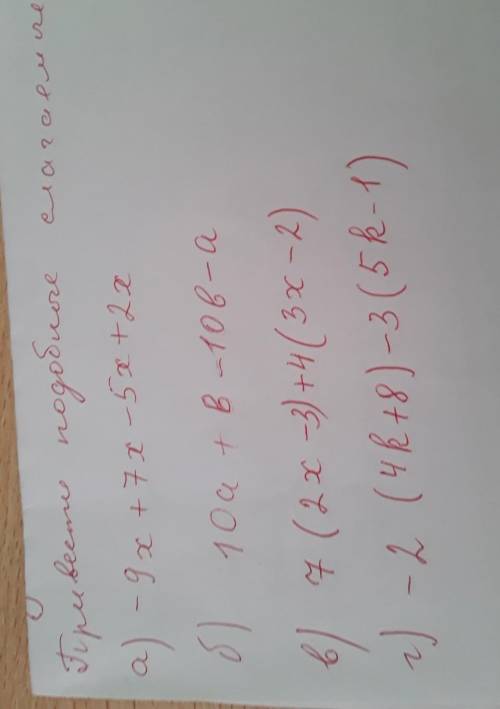 Привести подобные слагаемые
а) -9x + 7x - 5x + 2x
б) 10a + в - 10в - a
в) 7 (2x - 3) + 4 (3x - 2)
г) -2 (4k + 8) - 3 (5k - 1)